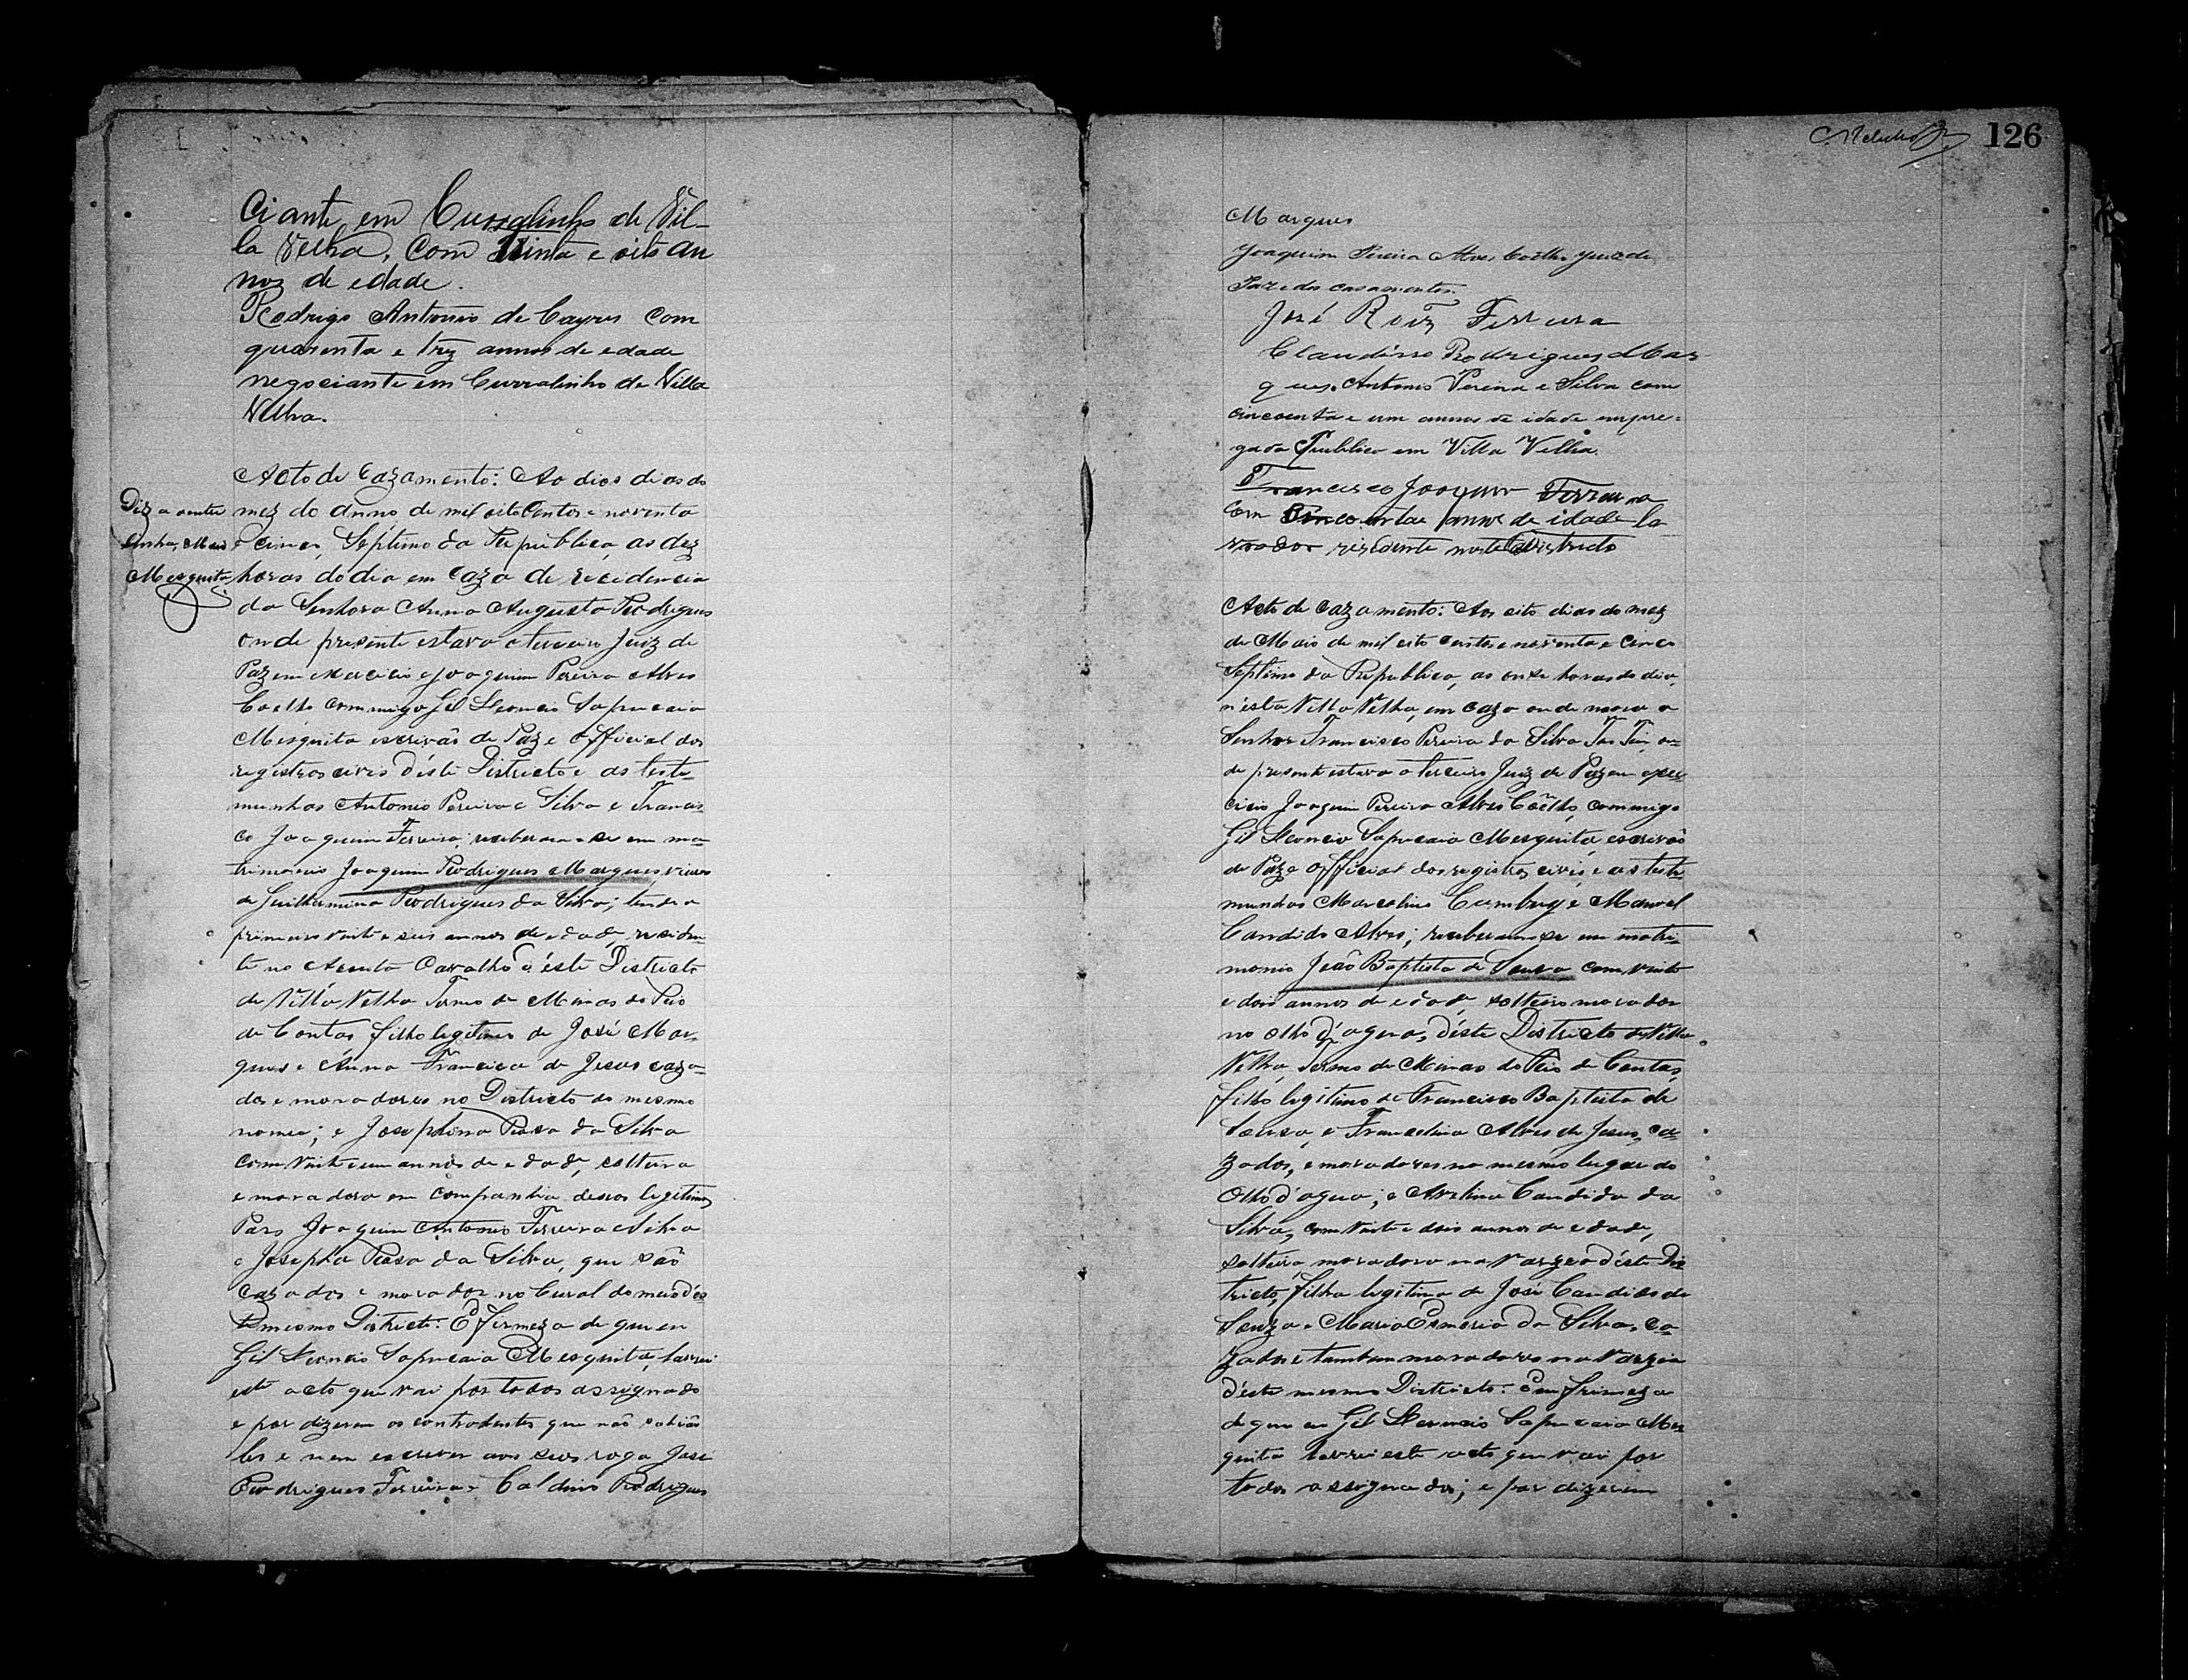 ciante em Curralinho de Vil-
la Velha, Com trinta e oito an
nos de edade.
Rodrigo Antonio de Cayres com
quarenta e trez annos de edade
negociante em Curralinho de Villa
Velha.
Acto de Cazamento: Ao dios dias do
mez do anno de mil oito Centos e noventa
e cinco, Septimo da Republica, as dez
horas do dia em Caza de recidencia
da Senhora Anna Augusta Rodrigues
onde presente estava o terceiro Juiz de
Paz em exercicio Joaquim Pereira Alves
Coelho commigo Gil Leoncio Sapucaia
Mesquita escrivão de Paz e Official dos
registros civis d'éste Districto e as teste-
munhas Antonio Pereira e Silva e Francis
co Joaquim Ferreira; receberam-se em ma-
trimonio Joaquim Rodrigues Marques, viuvo
de Guilhermina Rodrigues da Silva; tendo o
primeiro vinte e seis annos de edade, residen-
te no Carvalho d'éste Districto
de Villa Velha Termo de Minas do Rio
de Contas, filho legitimo de José Mar-
ques e Anna Francisca de Jesus caza-
dos e moradores no Districto do mesmo
nome; e Josephina Rosa da Silva
com vinte e um annos de edade, solteira
e moradora em companhia de seos legitimos
Pais Joaquim Antonio Ferreira e Silva
e Josepha Rosa da Silva, que são
cazados e morador no Curral do meio d'es
te mesmo Districto: E firmeza de que eu
Gil Leoncio Sapucaia Mesquita, lavrei
este acto que vai por todos assignado
e por dizerem os contrahentes que não sabião
ler e nem escrever aos seus rogo José
Rodrigues Ferreira e Caldino Rodrigues
Diz a entre
linha, Maio
Mesquita
126
Marques
Joaquim Pereira Alves Coelho Juiz de
Paz e dos casamentos.
José Roiz Ferreira
Claudino Rodrigues Mar
ques. Antonio Pereira e Silva com
cincoenta e um annos de idade empre-
gado Publico em Villa Velha.
Francisco Joaquim Ferreira
Com Cincoenta annos de idade la
vrador rezidente neste Districto
Acto de Cazamento: Aos oito dias do mez
de Maio de mil oito centos e noventa e cinco
Septimo da Republica, as onze horas do dia,
n'esta Villa Velha, em caza onde mora o
Senhor Francisco Pereira da Silva on-
de presente estava o terceiro Juiz de Paz em exer
cicio Joaquim Pereira Alves Coelho, commigo
Gil Leoncio Sapucaia Mesquita, escrivão
de Paz e Official dos registros civis e as teste-
munhas Marcolino Cambuy e Manoel
Candido Alves; receberam-se em matri-
monio João Baptista de Souza com vinte
e dois annos de edade, solteiro morador
no olho d'agua, d'éste Districto de Villa
Velha, Termo de Minas do Rio de Contas,
filho legitimo de Francisco Baptista de
Souza, e Francelina Alves de Jesus, ca-
zados, e moradores no mesmo lugar do
Olho d'agua; e Avelina Candida da
Silva, com vinte e dois annos de edade,
solteira, moradora na Varzea d'éste Dis
tricto, filha legitima de José Candido de
Souza e Maria Esmeria da Silva, ca-
zados e tambem moradores na Varzea
d'éste mesmo Districto: E em firmeza
de que eu Gil Leoncio Sapucaia Mes
quita lavrei este acto que vai por
todos assignados; e por dizerem